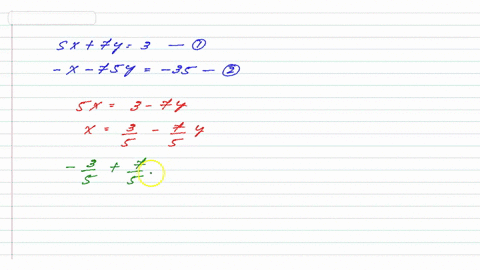 5x + 7y = 3 — ①
-x - 75y = -35 — ②
5x = 3 - 7y
x = 3/5 - 7/5 y
- 3/5 + 7/5